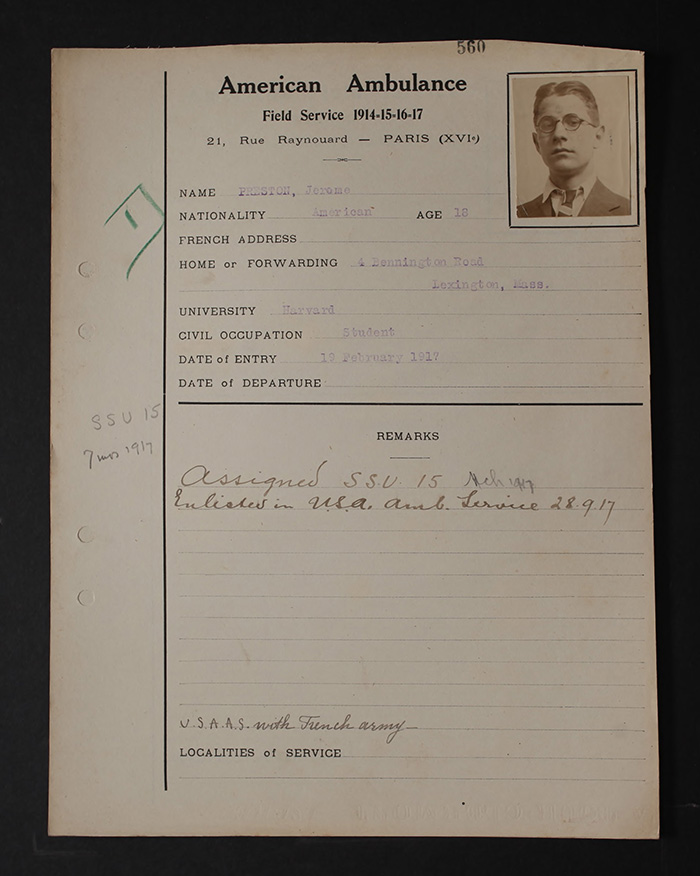 560
American Ambulance
Field Service 1914-15-16-17
21, Rue Raynouard — PARIS (XVIe)
NAME PRESTON, Jerome
NATIONALITY American AGE 18
FRENCH ADDRESS
HOME or FORWARDING 4 Bennington Road
Lexington, Mass.
UNIVERSITY Harvard
CIVIL OCCUPATION Student
DATE of ENTRY 19 February 1917
DATE of DEPARTURE
SSU 15
7 mos 1917
REMARKS
Assigned S.S.U. 15 Mch 1917
Enlisted in U.S.A. Amb. Service 28.9.17
U.S.A.A.S. with French army
LOCALITIES of SERVICE